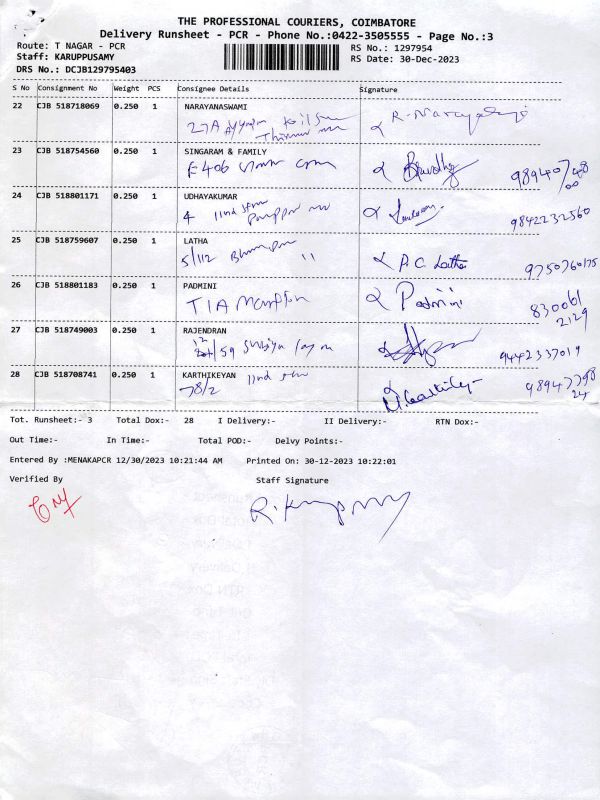 THE PROFESSIONAL COURIERS, COIMBATORE
Delivery Runsheet - PCR - Phone No.:0422-3505555 - Page No.:3
Route: T NAGAR - PCR
RS No.: 1297954
Staff: KARUPPUSAMY
RS Date: 30-Dec-2023
DRS No.: DCJB129795403
S No Consignment No Weight PCS Consignee Details Signature
22 CJB 518718069 0.250 1 NARAYANASWAMI
27A
R. Narayan
23 CJB 518754560 0.250 1 SINGARAM & FAMILY
F 406
24 CJB 518801171 0.250 1 UDHAYAKUMAR
4 IInd
9842232560
25 CJB 518759607 0.250 1 LATHA
5/112 "
P.C. Latha 9750760175
26 CJB 518801183 0.250 1 PADMINI
T1A
Padmini 830061
2129
27 CJB 518749003 0.250 1 RAJENDRAN
12
/59
9442337019
28 CJB 518708741 0.250 1 KARTHIKEYAN IInd
78/2
Tot. Runsheet:- 3 Total Dox:- 28 I Delivery:- II Delivery:- RTN Dox:-
Out Time:- In Time:- Total POD:- Delvy Points:-
Entered By :MENAKAPCR 12/30/2023 10:21:44 AM Printed On: 30-12-2023 10:22:01
Verified By Staff Signature